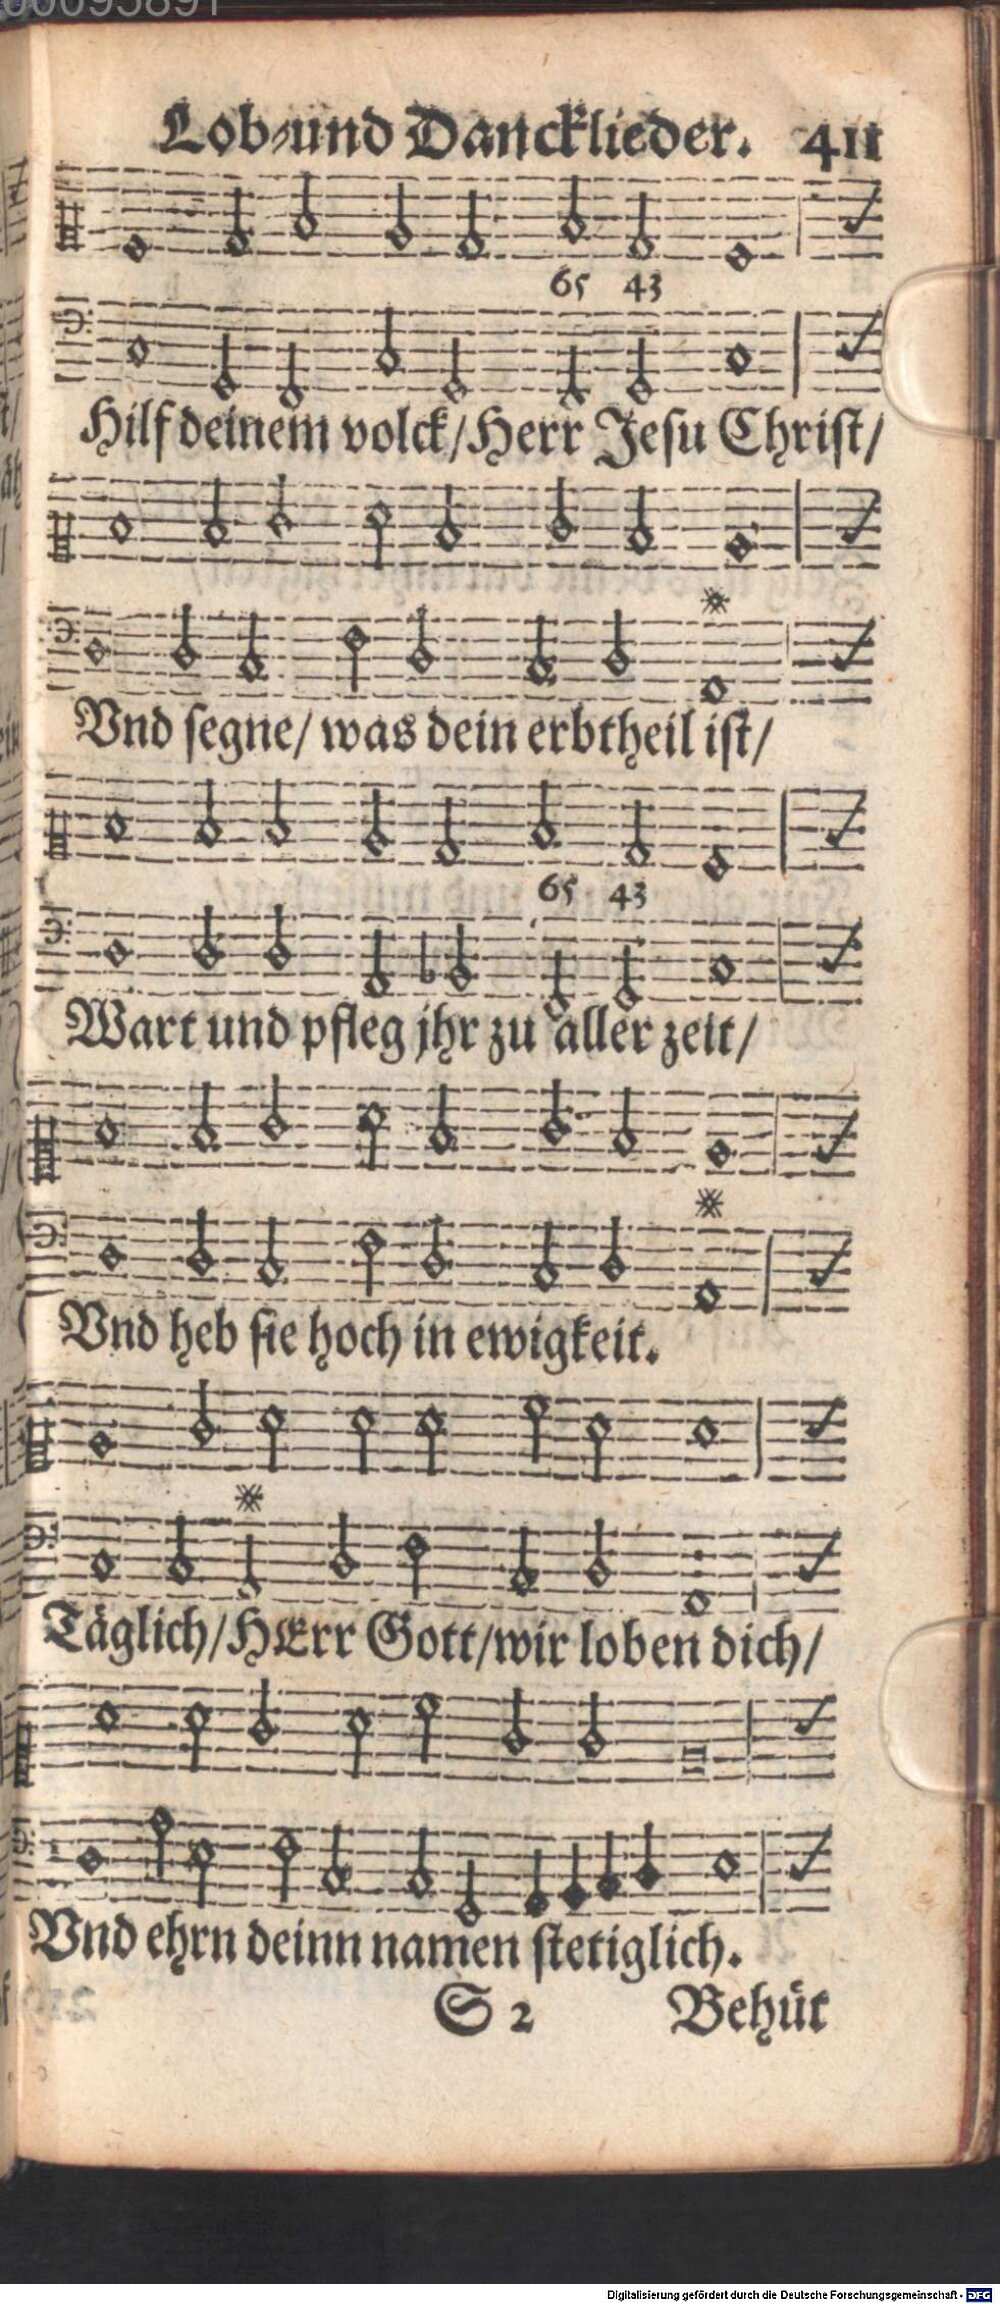 00095891
Lob-und Dancklieder. 411
65 43
Hilf deinem volck/Herr Jesu Christ/
Vnd segne/ was dein erbtheil ist/
65 43
Wart und pfleg jhr zu aller zeit/
Vnd heb sie hoch in ewigkeit.
Täglich/HErr Gott/wir loben dich/
Vnd ehrn deinn namen stetiglich.
S 2 Behüt
Digitalisierung gefördert durch die Deutsche Forschungsgemeinschaft - DFG